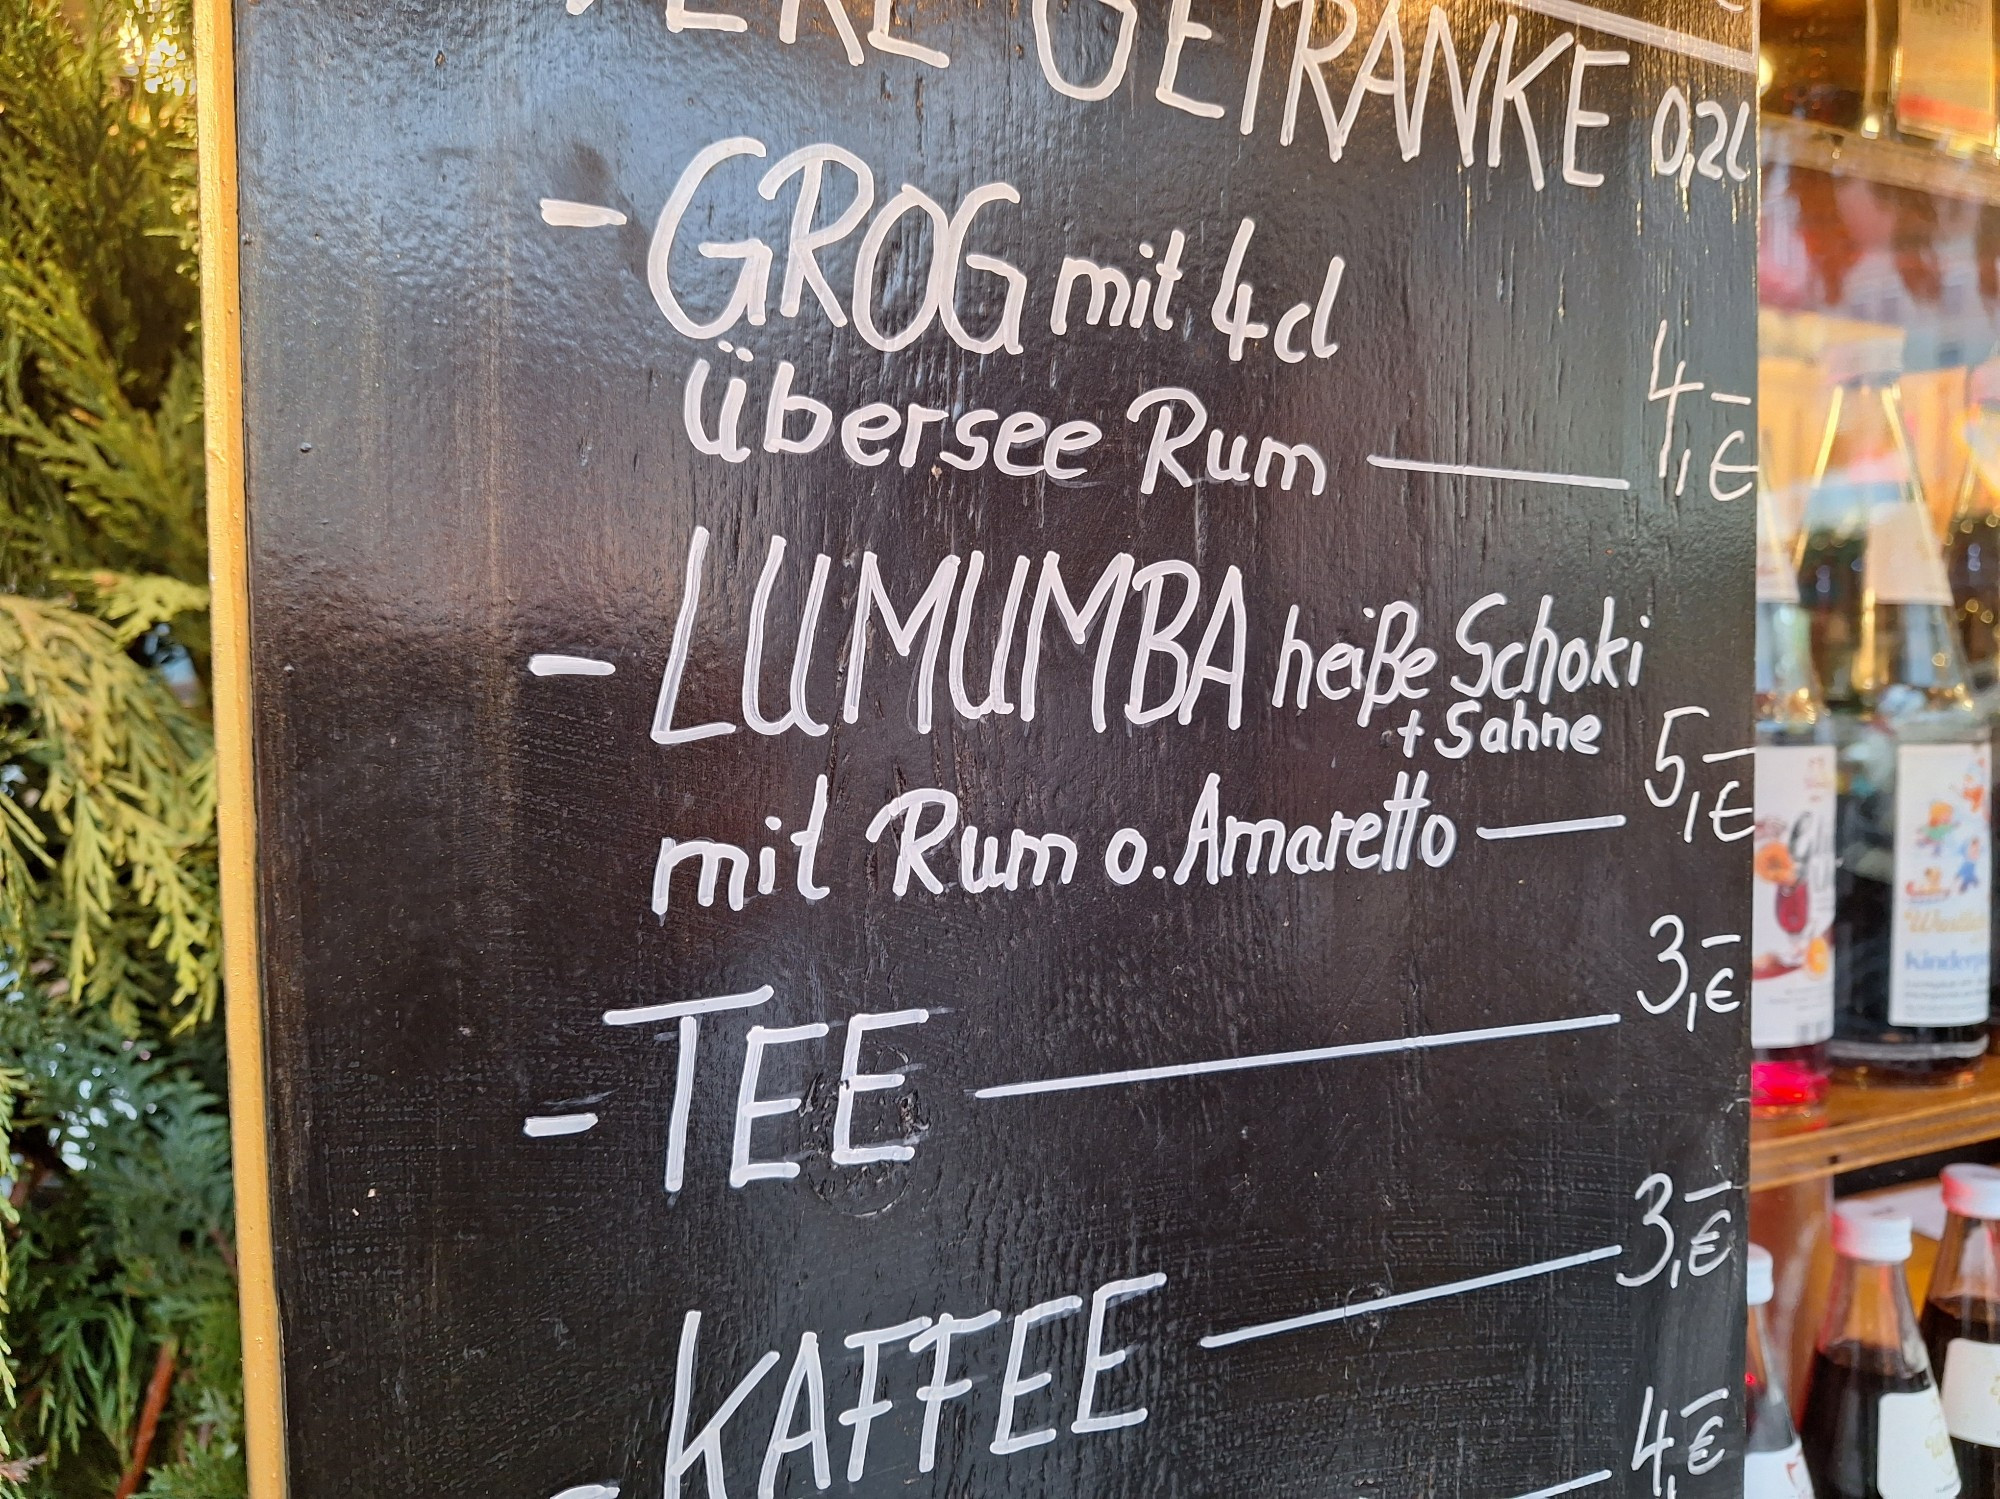 GETRÄNKE 0,2l
- GROG mit 4cl
übersee Rum — 4,-€
- LUMUMBA heiße Schoki
+ Sahne
mit Rum o. Amaretto — 5,-€
- TEE — 3,-€
KAFFEE — 3,-€
- 4,-€